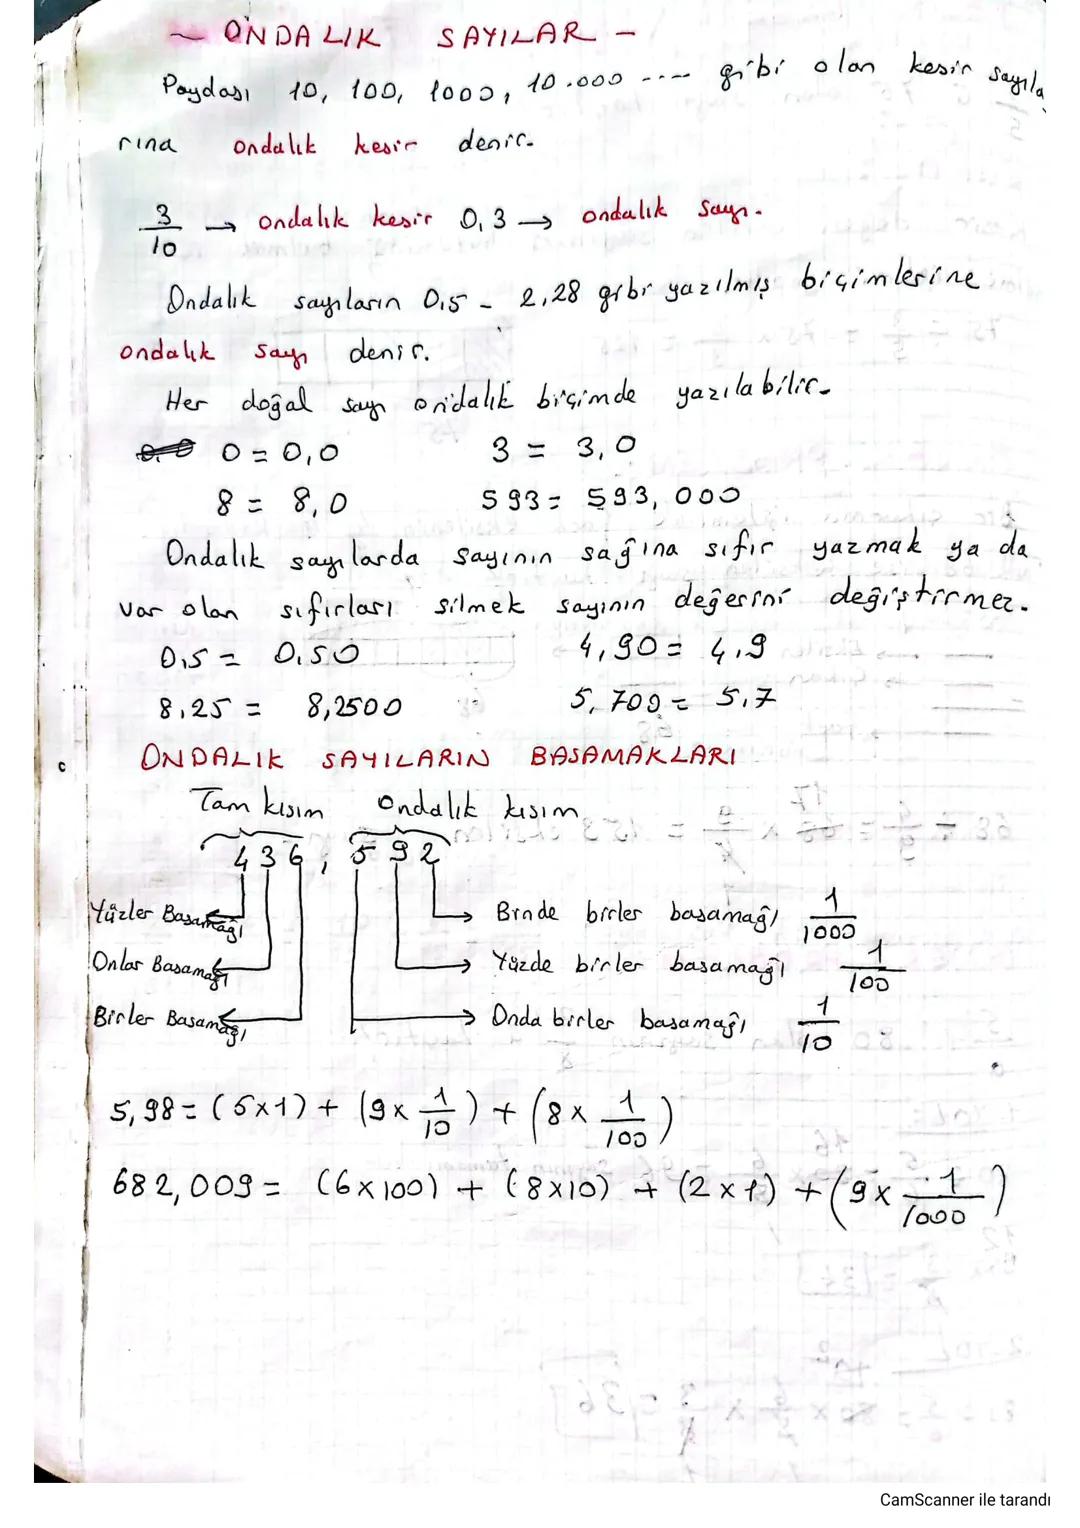 ~ ONDALIK SAYILAR -
Paydası 10, 100, 1000, 10.000 ---- gibi olan kesir sayıla
rına ondalık kesir denir.
3/10 → ondalık kesir 0,3 → ondalık sayı.
Ondalık sayıların 0,5 - 2,28 gibi yazılmış biçimlerine
ondalık sayı denir.
Her doğal sayı ondalık biçimde yazılabilir.
0 = 0,0 3 = 3,0
8 = 8,0 593 = 593,000
Ondalık sayılarda sayının sağına sıfır yazmak ya da
var olan sıfırları silmek sayının değerini değiştirmez.
0,5 = 0,50 4,90 = 4,9
8,25 = 8,2500 5,700 = 5,7
ONDALIK SAYILARIN BASAMAKLARI
Tam kısım Ondalık kısım
436,592
Yüzler Basamağı Binde birler basamağı 1/1000
Onlar Basamağı Yüzde birler basamağı 1/100
Birler Basamağı Onda birler basamağı 1/10
5,98 = (5x1) + (9x 1/10) + (8x 1/100)
682,009 = (6x100) + (8x10) + (2x1) + (9x 1/1000)
CamScanner ile tarandı